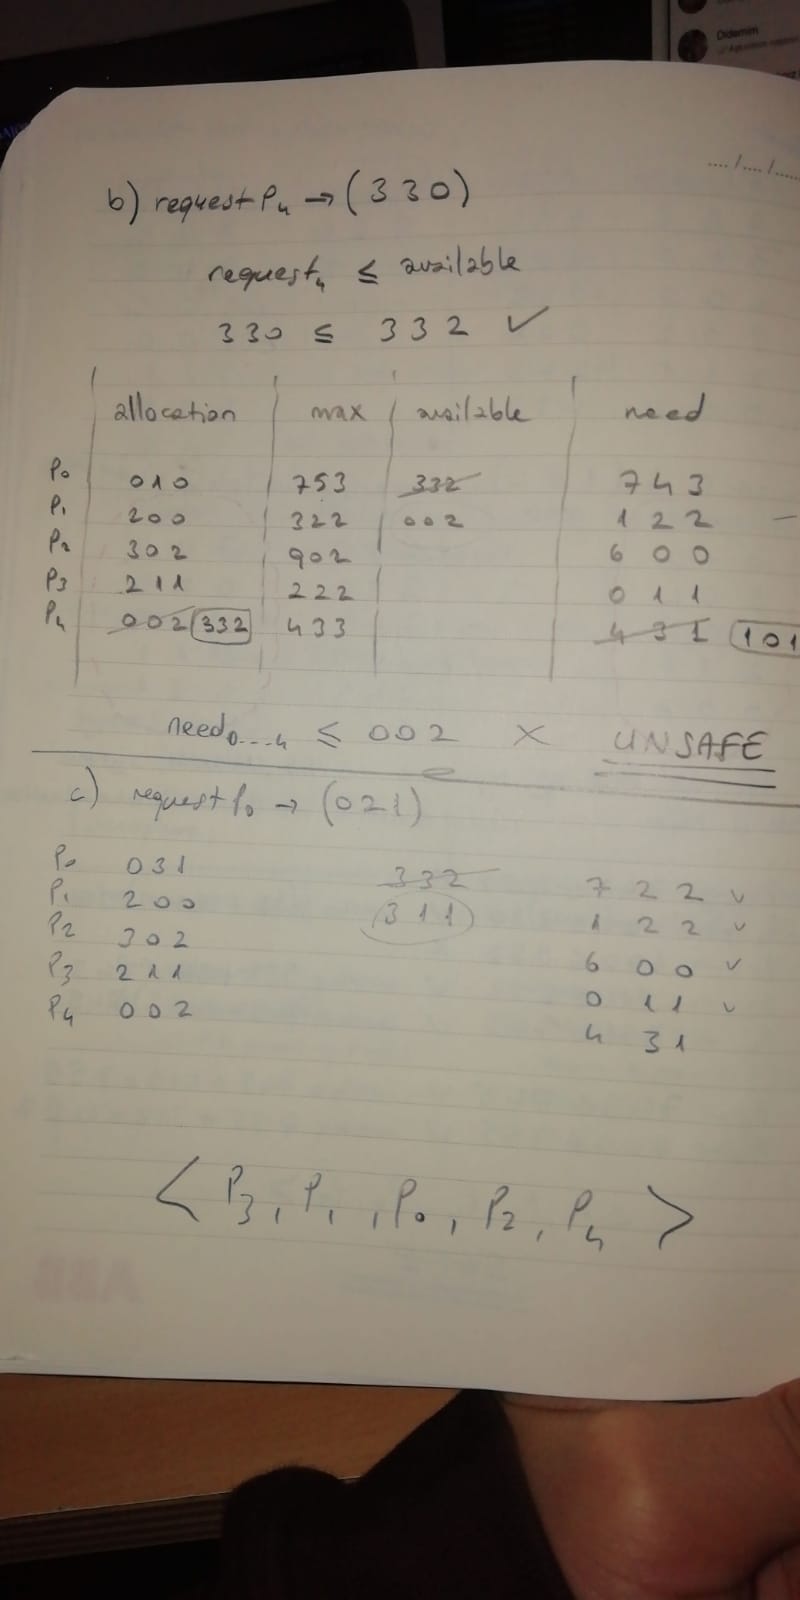 Didemim
.... / .... / .....
b) request P₄ → (330)
request₄ ≤ available
330 ≤ 332 ✓
allocation max available need
P₀ 010 753 332 743
P₁ 200 322 002 122 -
P₂ 302 902 600
P₃ 211 222 011
P₄ 002 332 433 431 101
need₀...₄ ≤ 002 × UNSAFE
c) request P₀ → (021)
P₀ 031 332 722 ✓
P₁ 200 311 122 ✓
P₂ 302 600 ✓
P₃ 211 011 ✓
P₄ 002 431
< P₃, P₁, P₀, P₂, P₄ >